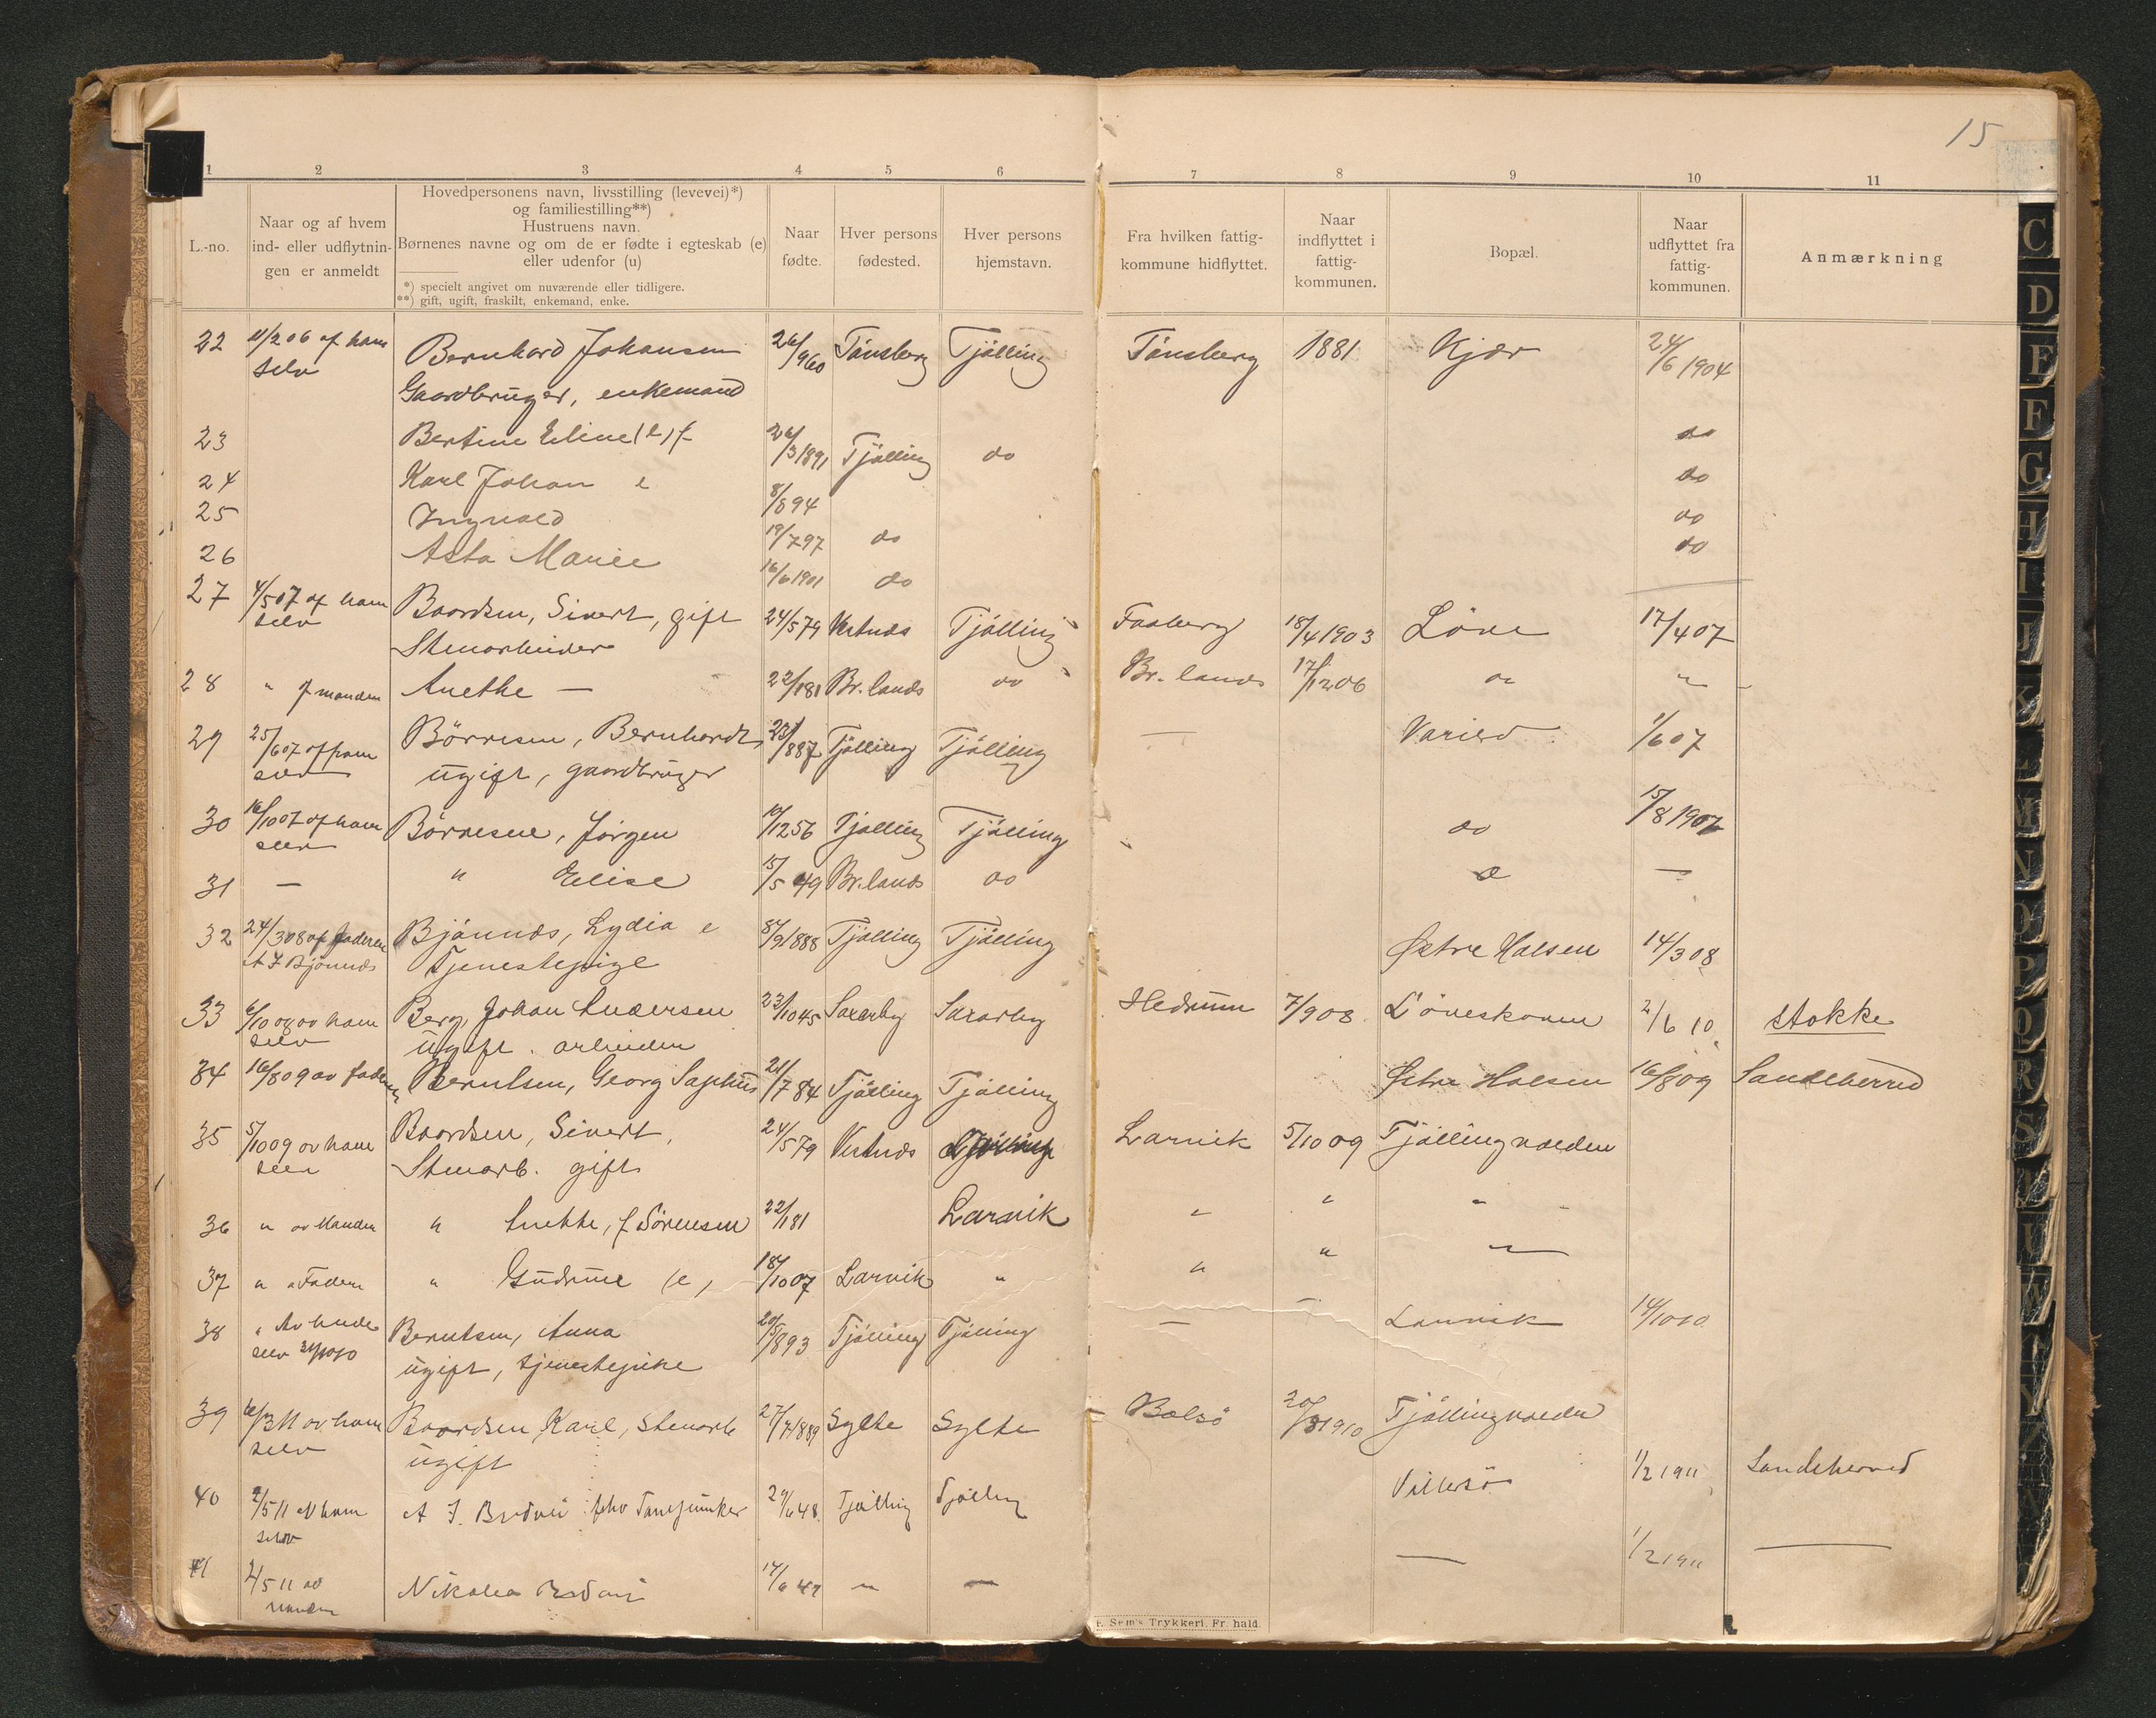 15
1 2 3 4 5 6 7 8 9 10 11
L.-no.
Naar og af hvem
ind- eller udflytnin-
gen er anmeldt
Hovedpersonens navn, livsstilling (levevei)*)
og familiestilling**)
Hustruens navn.
Børnenes navne og om de er fødte i egteskab (e)
eller udenfor (u)
*) specielt angivet om nuværende eller tidligere.
**) gift, ugift, fraskilt, enkemand, enke.
Naar
fødte.
Hver persons
fødested.
Hver persons
hjemstavn.
Fra hvilken fattig-
kommune hidflyttet.
Naar
indflyttet i
fattig-
kommunen.
Bopæl.
Naar
udflyttet fra
fattig-
kommunen.
Anmærkning
22 11/2 06 af ham Bernhard Johansen 26/9 60 Tönsberg Tjölling Tönsberg 1881 Kjær 24/6 1904
selv Gaardbruger, enkemand
23 Bertine Eline (e) f 26/3 1891 Tjölling do do
24 Karl Johan e 8/8 94 do
25 Ingvald 19/7 97 do do
26 Asta Marie 16/6 1901 do do
27 4/5 07 af ham Baardsen, Sivert, gift 24/5 79 Vestnds Tjölling Faaberg 18/4 1903 Löve 17/4 07
selv Stenarbeider
28 " f manden Anethe — 22/1 81 Br.lands do Br. lands 17/12 06 do "
29 25/6 07 af ham Börresen, Bernhardt 23/ 887 Tjölling Tjölling — Varild 1/6 07
selv ugift, gaardbruger
30 16/10 07 af ham Börresen, Jörgen 10/12 56 Tjölling Tjölling do 15/8 1907
selv
31 — " Elise 15/5 49 Br.lands do do —
32 24/3 08 af faderen Bjönnes, Lydia e 8/9 1888 Tjölling Tjölling Østre Halsen 14/3 08
A J Bjönnes Tjenestepige
33 6/10 08 av ham Berg, Johan Andersen 23/10 45 Saxarby Saxarby Hedrum 7/9 08 Löveskoven 2/6 10 Stokke
selv ugift. arbeider
34 16/8 09 av faderen Berntsen, Georg Saphus 21/7 84 Tjölling Tjölling Østre Halsen 16/8 09 Sandeherred
35 5/10 09 av ham Baardsen, Sivert, 24/5 79 Vestnds Larvik 5/10 09 Tjöllingvolden
selv Stenarb. gift
36 " av Manden " Anethe, f Sörensen 22/1 81 Larvik " " "
37 " " Faderen " Gudrun (e) 18/10 07 Larvik " " " "
38 " Av hende Berntsen, Anna 20/5 893 Tjölling Tjölling — — Larvik 14/10 10
selv 31/10 10 ugift, tjenestepike
39 6/3 11 av ham Baardsen Karl, Stenarb 27/7 1889 Sylte Sylte Bolsö 20/8 1910 Tjöllingvolden
selv ugift
40 2/5 11 av ham A. J. 29/6 48 Tjölling Tjölling Villersö 1/2 1911 Sandeherred
selv
41 2/5 11 av Nikolea 17/6 47 " — — 1/2 1911 —
Manden
F. Sem's Trykkeri, Fr.hald.
C
D
E
F
G
H
I
J
K
L
M
N
O
P
Q
R
S
T
U
W